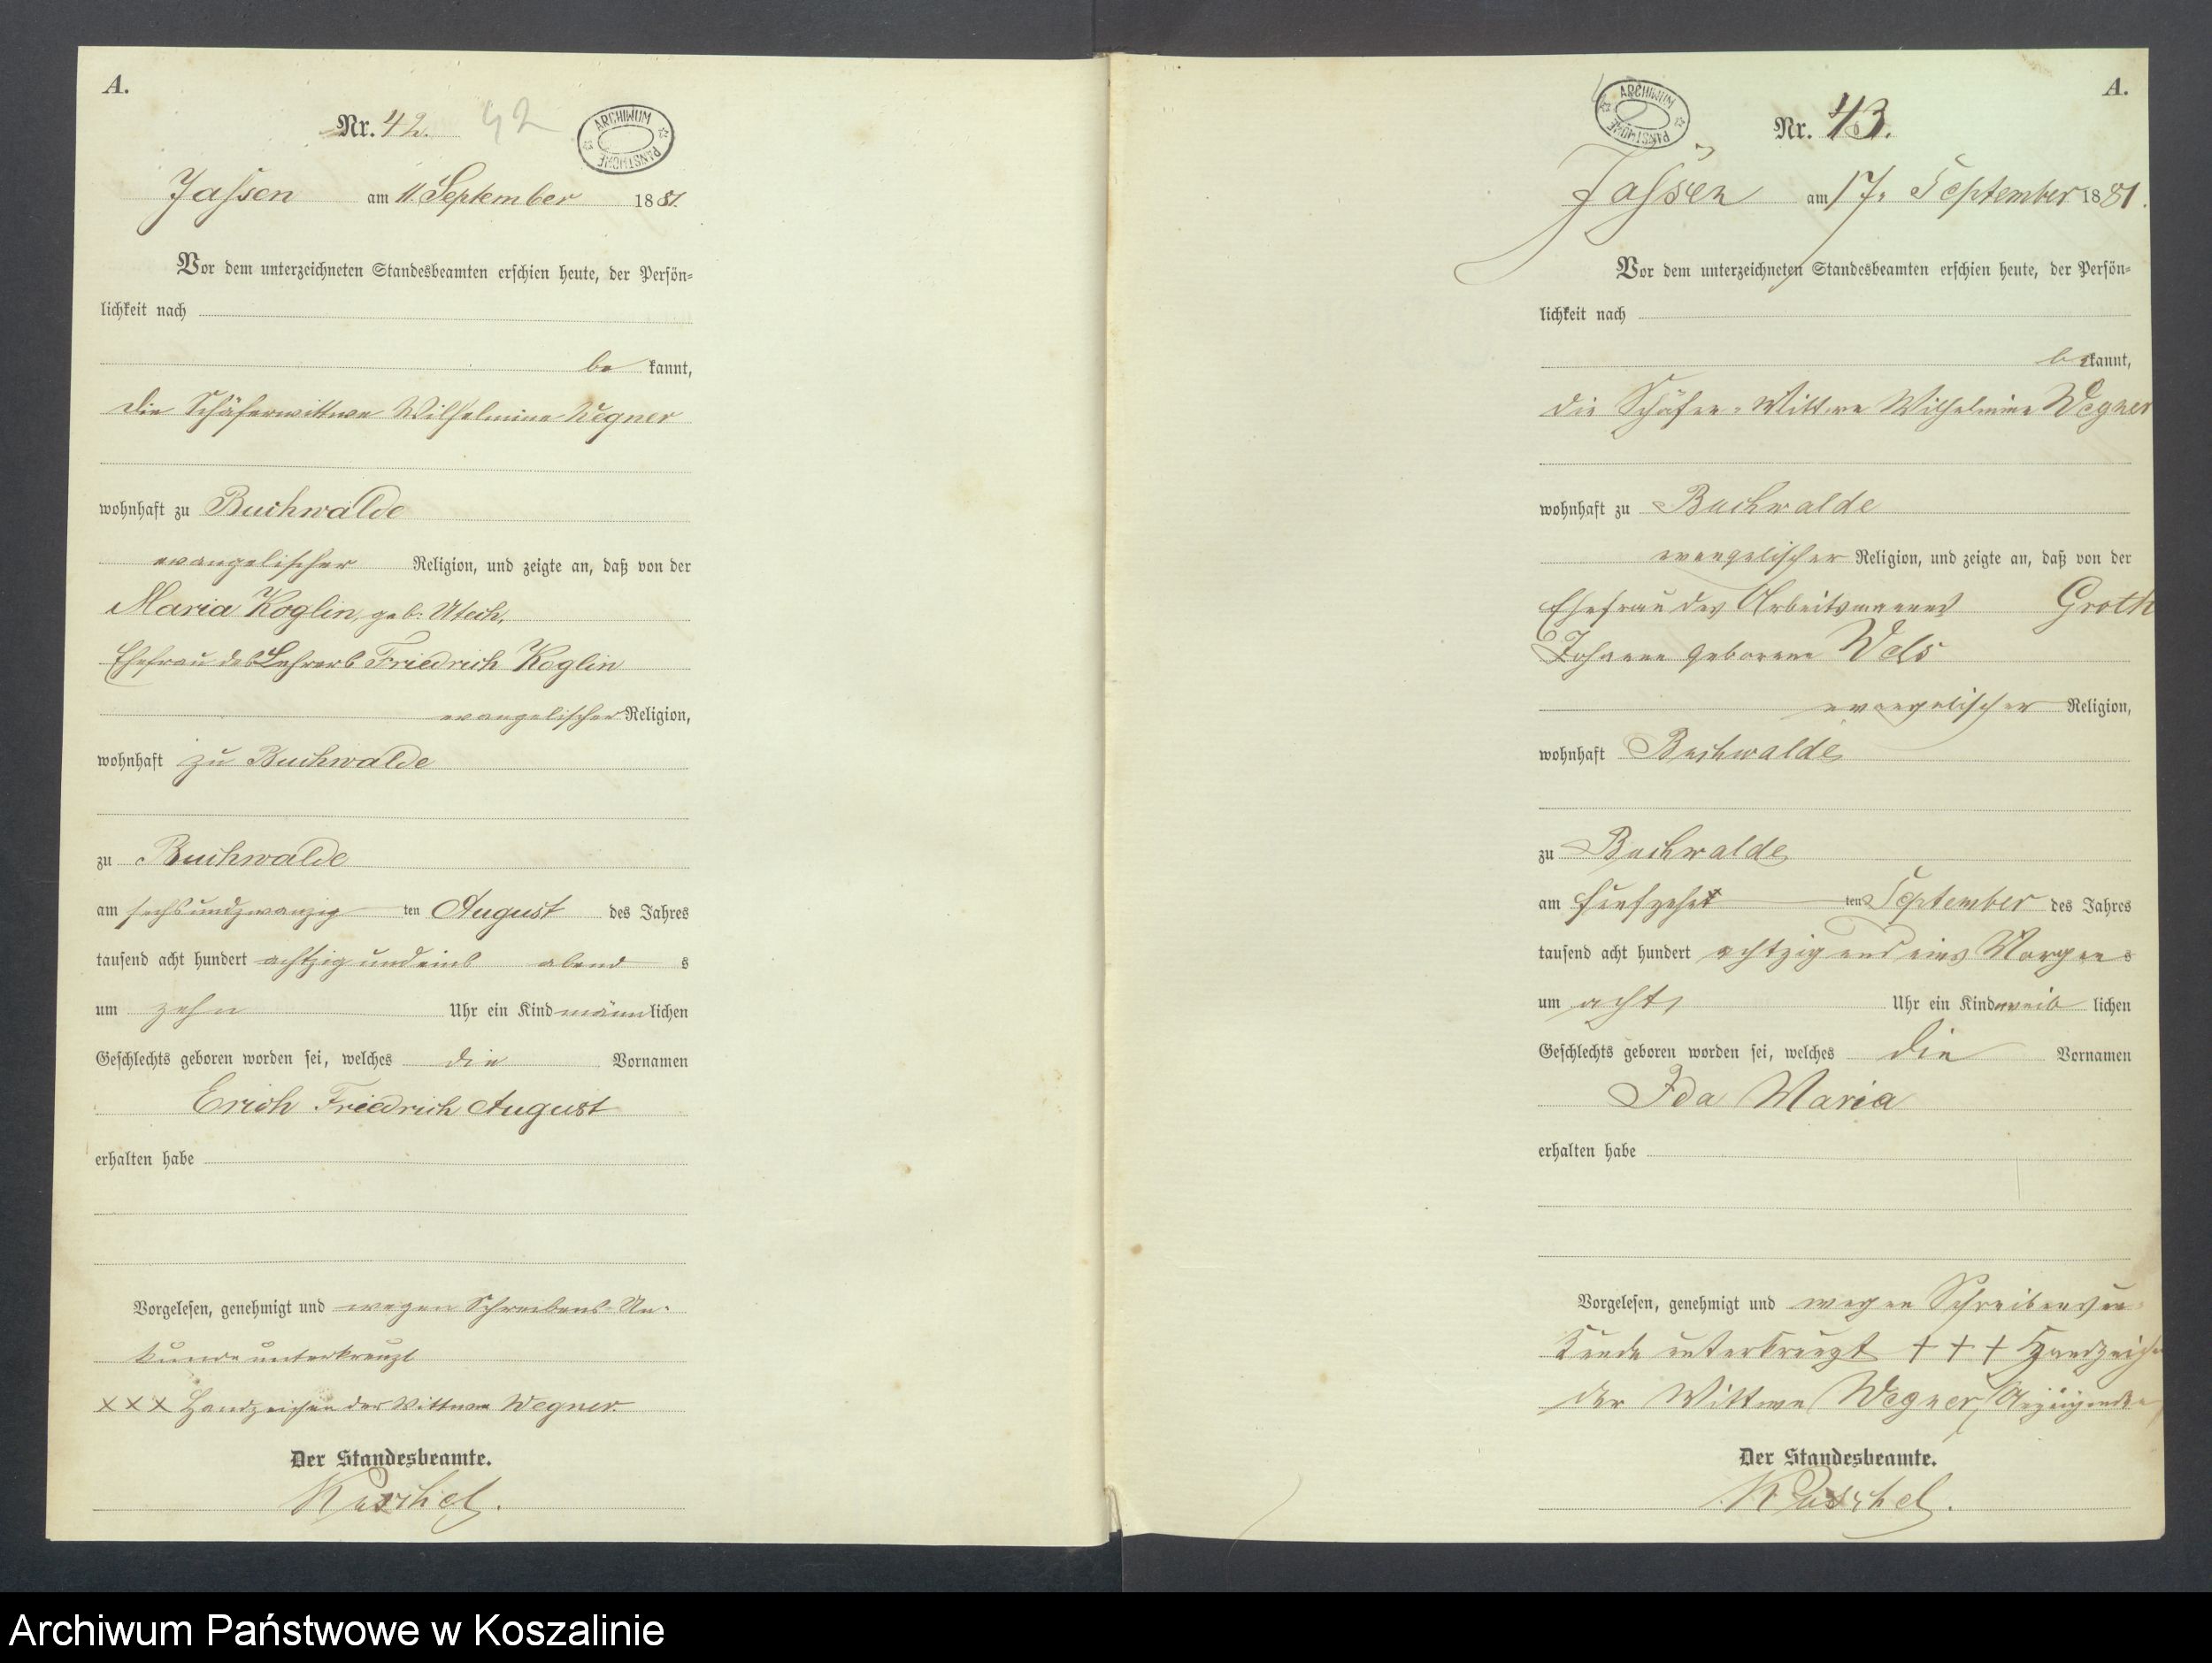 A.
Nr. 42. 42
ARCHIWUM PAŃSTWOWE
Jassen am 11. September 1881.
Vor dem unterzeichneten Standesbeamten erschien heute, der Persön-
lichkeit nach
be kannt,
die Schäferwittwe Wilhelmine Wegner
wohnhaft zu Buchwalde
evangelischer Religion, und zeigte an, daß von der
Maria Koglin, geb. Utech,
Ehefrau des Lehrers Friedrich Koglin
evangelischer Religion,
wohnhaft zu Buchwalde
zu Buchwalde
am sechsundzwanzig ten August des Jahres
tausend acht hundert achtzig und eins abend s
um zehn Uhr ein Kind männlichen
Geschlechts geboren worden sei, welches die Vornamen
Erich Friedrich August
erhalten habe
Vorgelesen, genehmigt und wegen Schreibens-Un-
kunde unterkreuzt
XXX Handzeichen der Wittwe Wegner.
Der Standesbeamte.
Kuschel.
A.
ARCHIWUM PAŃSTWOWE
Nr. 43.
Jassen am 17. September 1881.
Vor dem unterzeichneten Standesbeamten erschien heute, der Persön-
lichkeit nach
bekannt,
die Schäfer-Wittwe Wilhelmine Wegner
wohnhaft zu Buchwalde
evangelischer Religion, und zeigte an, daß von der
Ehefrau des Arbeitsmannes Groth
Johanne geborene Wels
evangelischer Religion,
wohnhaft Buchwalde
zu Buchwalde
am fünfzehn ten September des Jahres
tausend acht hundert achtzig und eins Morgens
um acht Uhr ein Kind weib lichen
Geschlechts geboren worden sei, welches die Vornamen
Ida Maria
erhalten habe
Vorgelesen, genehmigt und wegen Schreibensun-
kunde unterkreuzt + + + Handzeichen
der Wittwe Wegner,
Der Standesbeamte.
Kuschel.
Archiwum Państwowe w Koszalinie